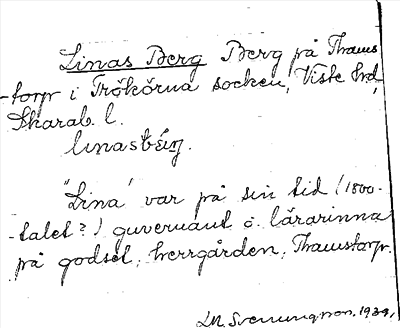 Linas Berg Berg på Thams
-torp i Trökörna socken, Viste hrd,
Skarab. l.
linasbärj.
"Lina" var på sin tid (1800-
-talet?) guvernant o. lärarinna
på godset, herrgården, Thamstorp.
LM. Svenungsson, 1939,